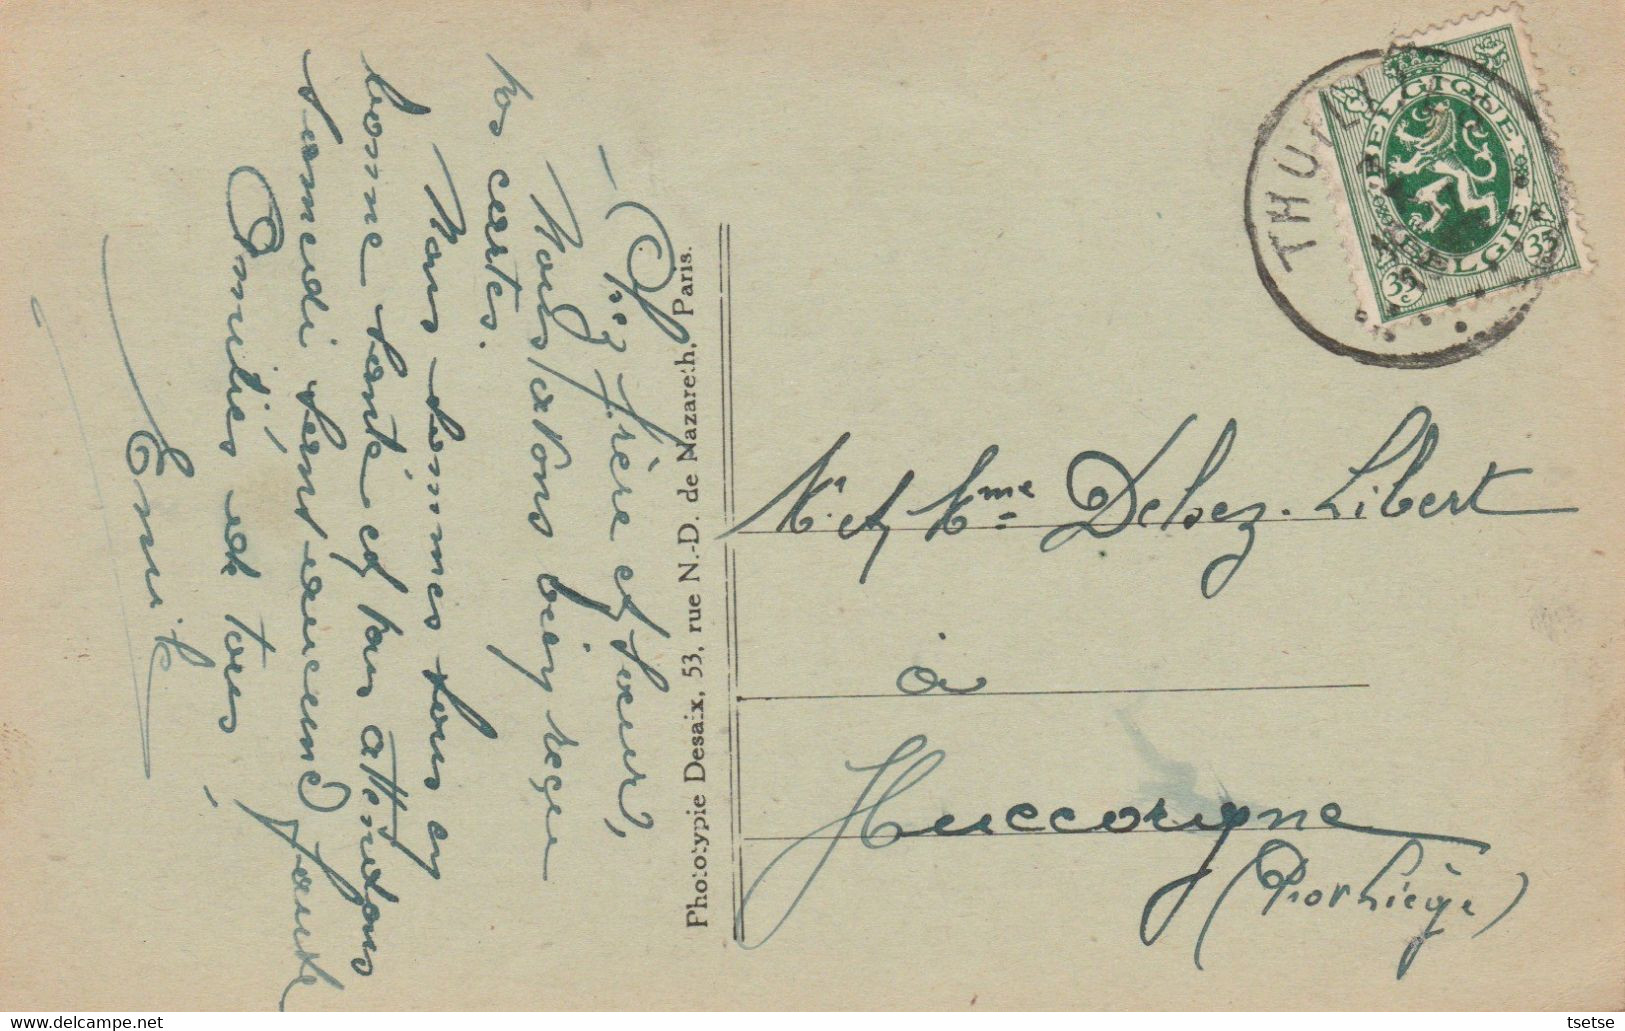 Chrez frère et soeur,
Nous avons bien reçu
vos cartes.
Nous sommes tous en
bonne santé et vous attendons
samedi sans aucune faute
Amitiés et tous,
Emile
Phototypie Desaix, 53, rue N.-D. de Nazareth. Paris.
THUILL
BELGIQUE
BELGIE
35c
35
Mr et Mme Delsez-Libert
à
Huccorgne
(Prov Liège)
tsetse
www.delcampe.net